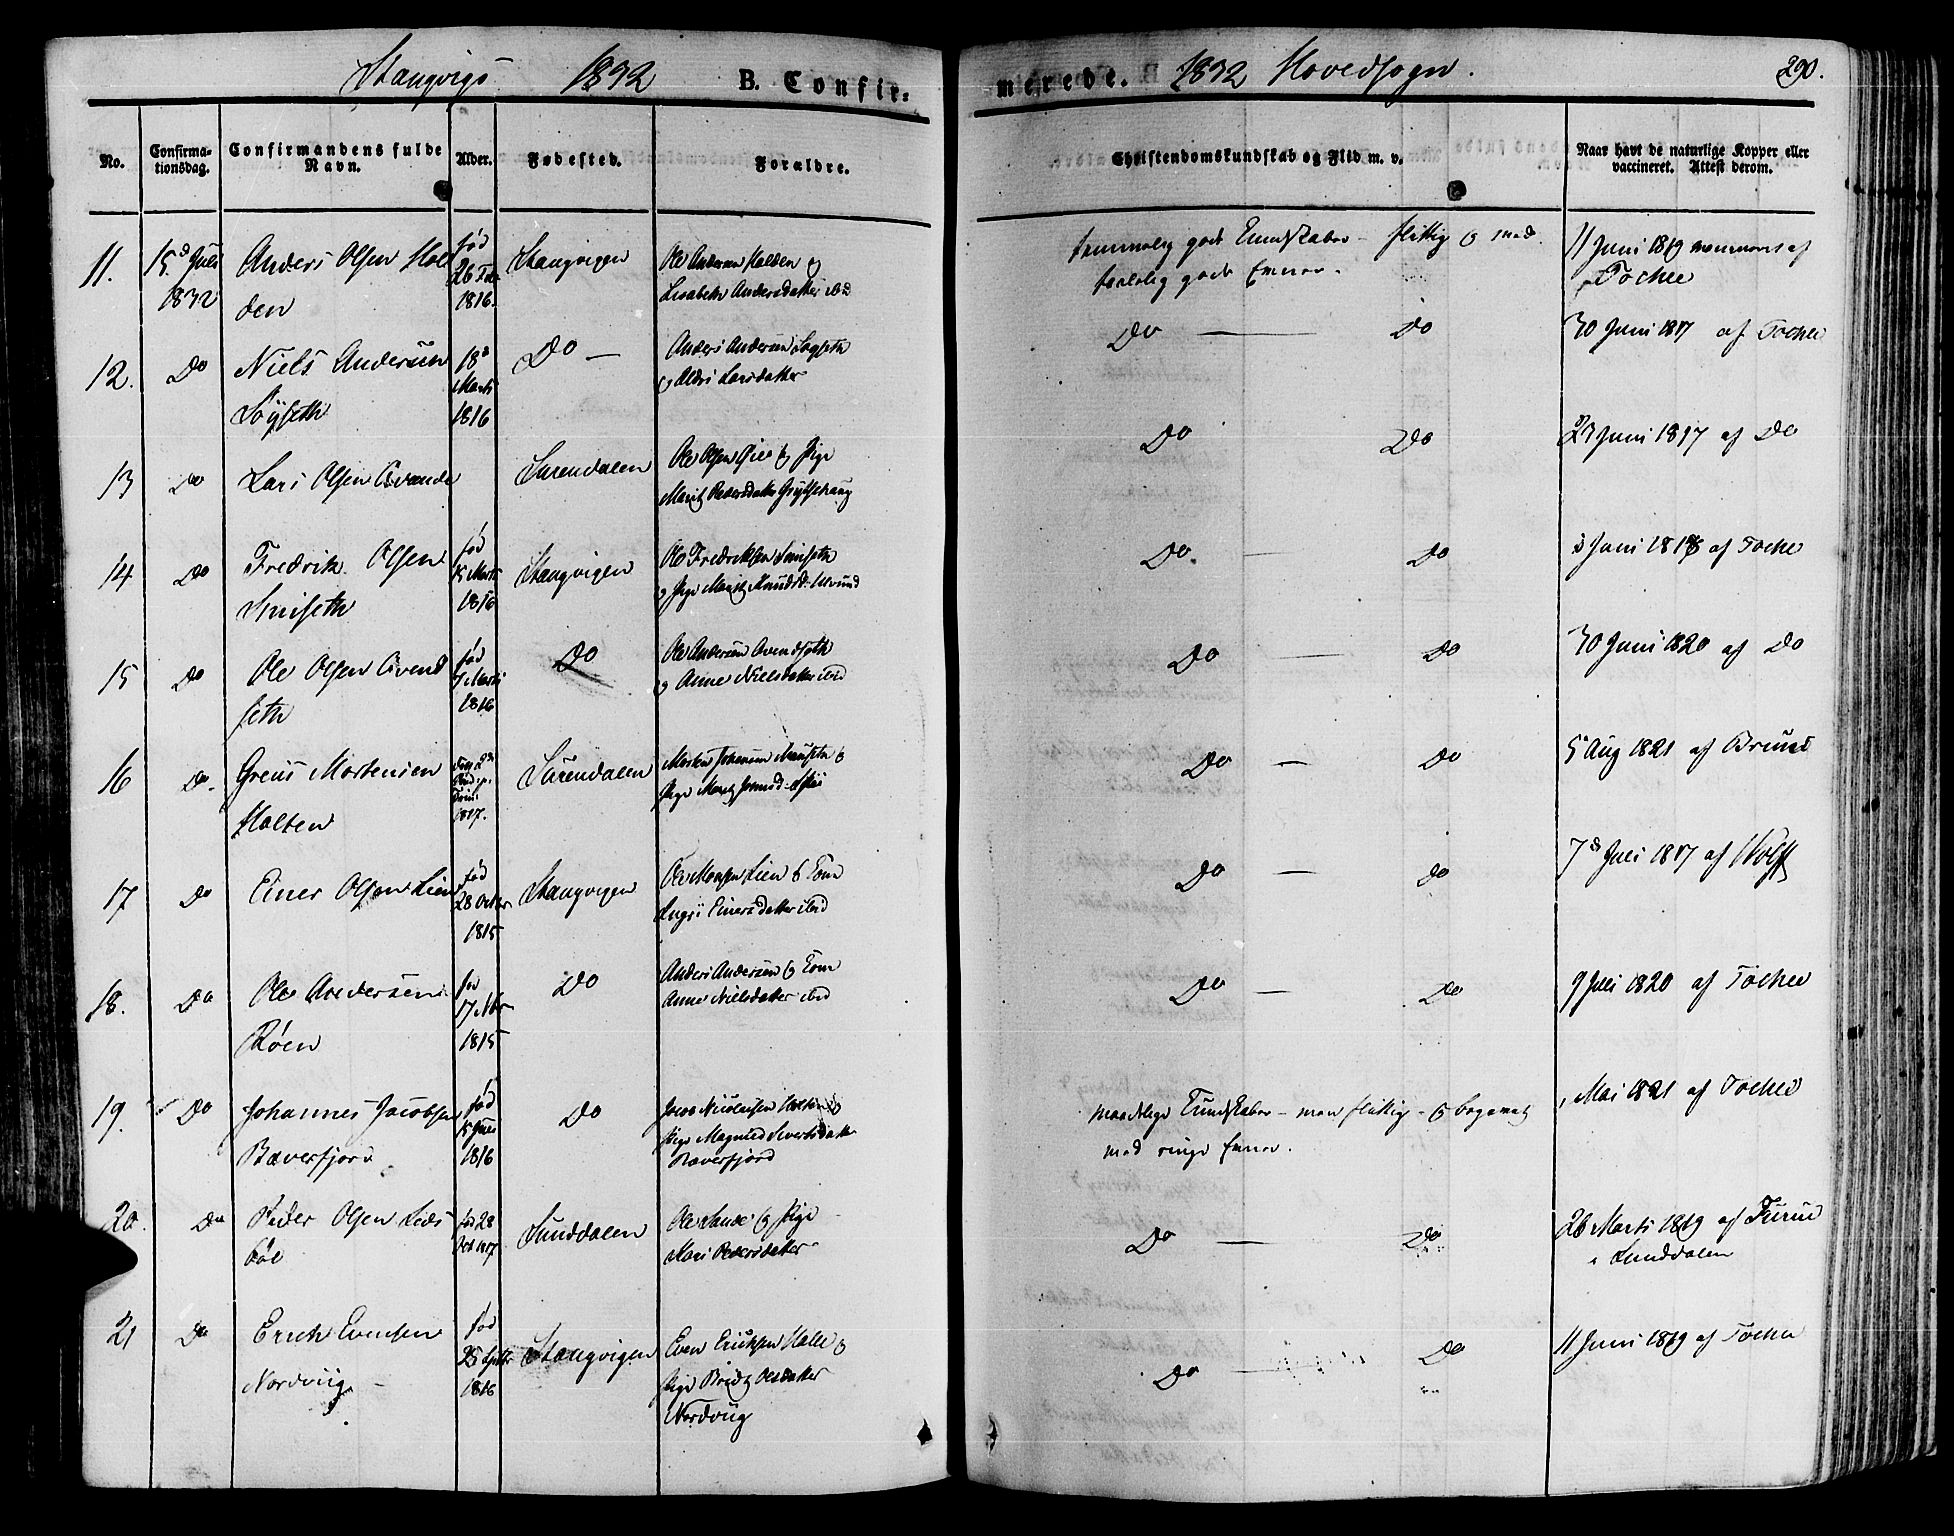 Stangvigs 1832 B. Confir-
merede. 1832 Hovedsogn. 290.
No. Confirma-
tionsdag. Confirmandens fulde
Navn. Alder. Fødested. Forældre.
Christendomskundskab og Flid m. v. Naar havt de naturlige Kopper eller
vaccineret. Attest derom.
11. 15d Juli
1832
Anders Olsen Hol
den
fød
26 Feb
1816.
Stangvigen
Ole Andersen Holden og
Lisabeth Andersdatter ibd
temmelig gode Kundskaber - flittig og med
gode Evner.
11 Juni 1819 af
Tochle
12. Do
Niels Andersen
Løyseth
18d
Marts
1816
Do
Anders Andersen Løyseth
og Larsdatter
Do Do
30 Juni 1817 af Tochle
13 Do
Lars Olsen Qvande
Surendalen
Ole Olsen Qvie og Pige
Marit Pedersdatter Grytshaug
Do Do
23 Juni 1817 af Do
14 Do
Fredrik Olsen
Sniseth
fød
15 Marts
1816
Stangvigen
Ole Fredriksen Sniseth
og Pige Marit Knudsd. Ulvund
Do. Do
Juni 1818 af Tochle
15 Do
Ole Olsen Qvend
seth
fød
Marts
1816
Do
Ole Andersen Qvendseth
og Anne Nielsdatter ibid
Do Do
30 Juni 1820 af Do
16 Do.
Greus Mortensen
Holten
Trin.
1817.
Surendalen
Morten Johnsen
Pige Marit
Do Do
5 Aug 1821 af Bruset
17 Do
Einer Olsen Lien
fød
28 Octbr
1815
Stangvigen
Ole Monsen Lien og Kone
Ingri Einersdatter ibid
Do Do
7d Juli 1817 af Wolff
18. Do
Ole Andersen
Røen
fød
17 Nbr
1815
Do
Anders Andersen og Kone
Anne Nielsdatter ibid
Do Do
9 Juli 1820 af Tochle
19. Do
Johannes Jacobsen
Bæverfjord
fød
15 Juni
1816
Do
Jacob Nicolaisen Holten og
Pige Magnild Sivertsdatter
Bæverfjord
maadelige Kundskaber - men flittig - og begavet
med ringe Evner.
Mai 1821 af Tochle
20. Do
Peder Olsen Leds
bøl
fød 28
Oct 1817
Sunddalen
Ole Lande og Pige
Kari Pedersdatter
Do Do
26 Marts 1819 af Furue
i Sunddalen
21 Do
Erich Evensen
Nordviig
fød
25 Septbr
1816
Stangvigen
Even Eriksen Halle og
Pige Brit Olsdatter
Nordviig
Do Do
11 Juni 1819 af Tochle